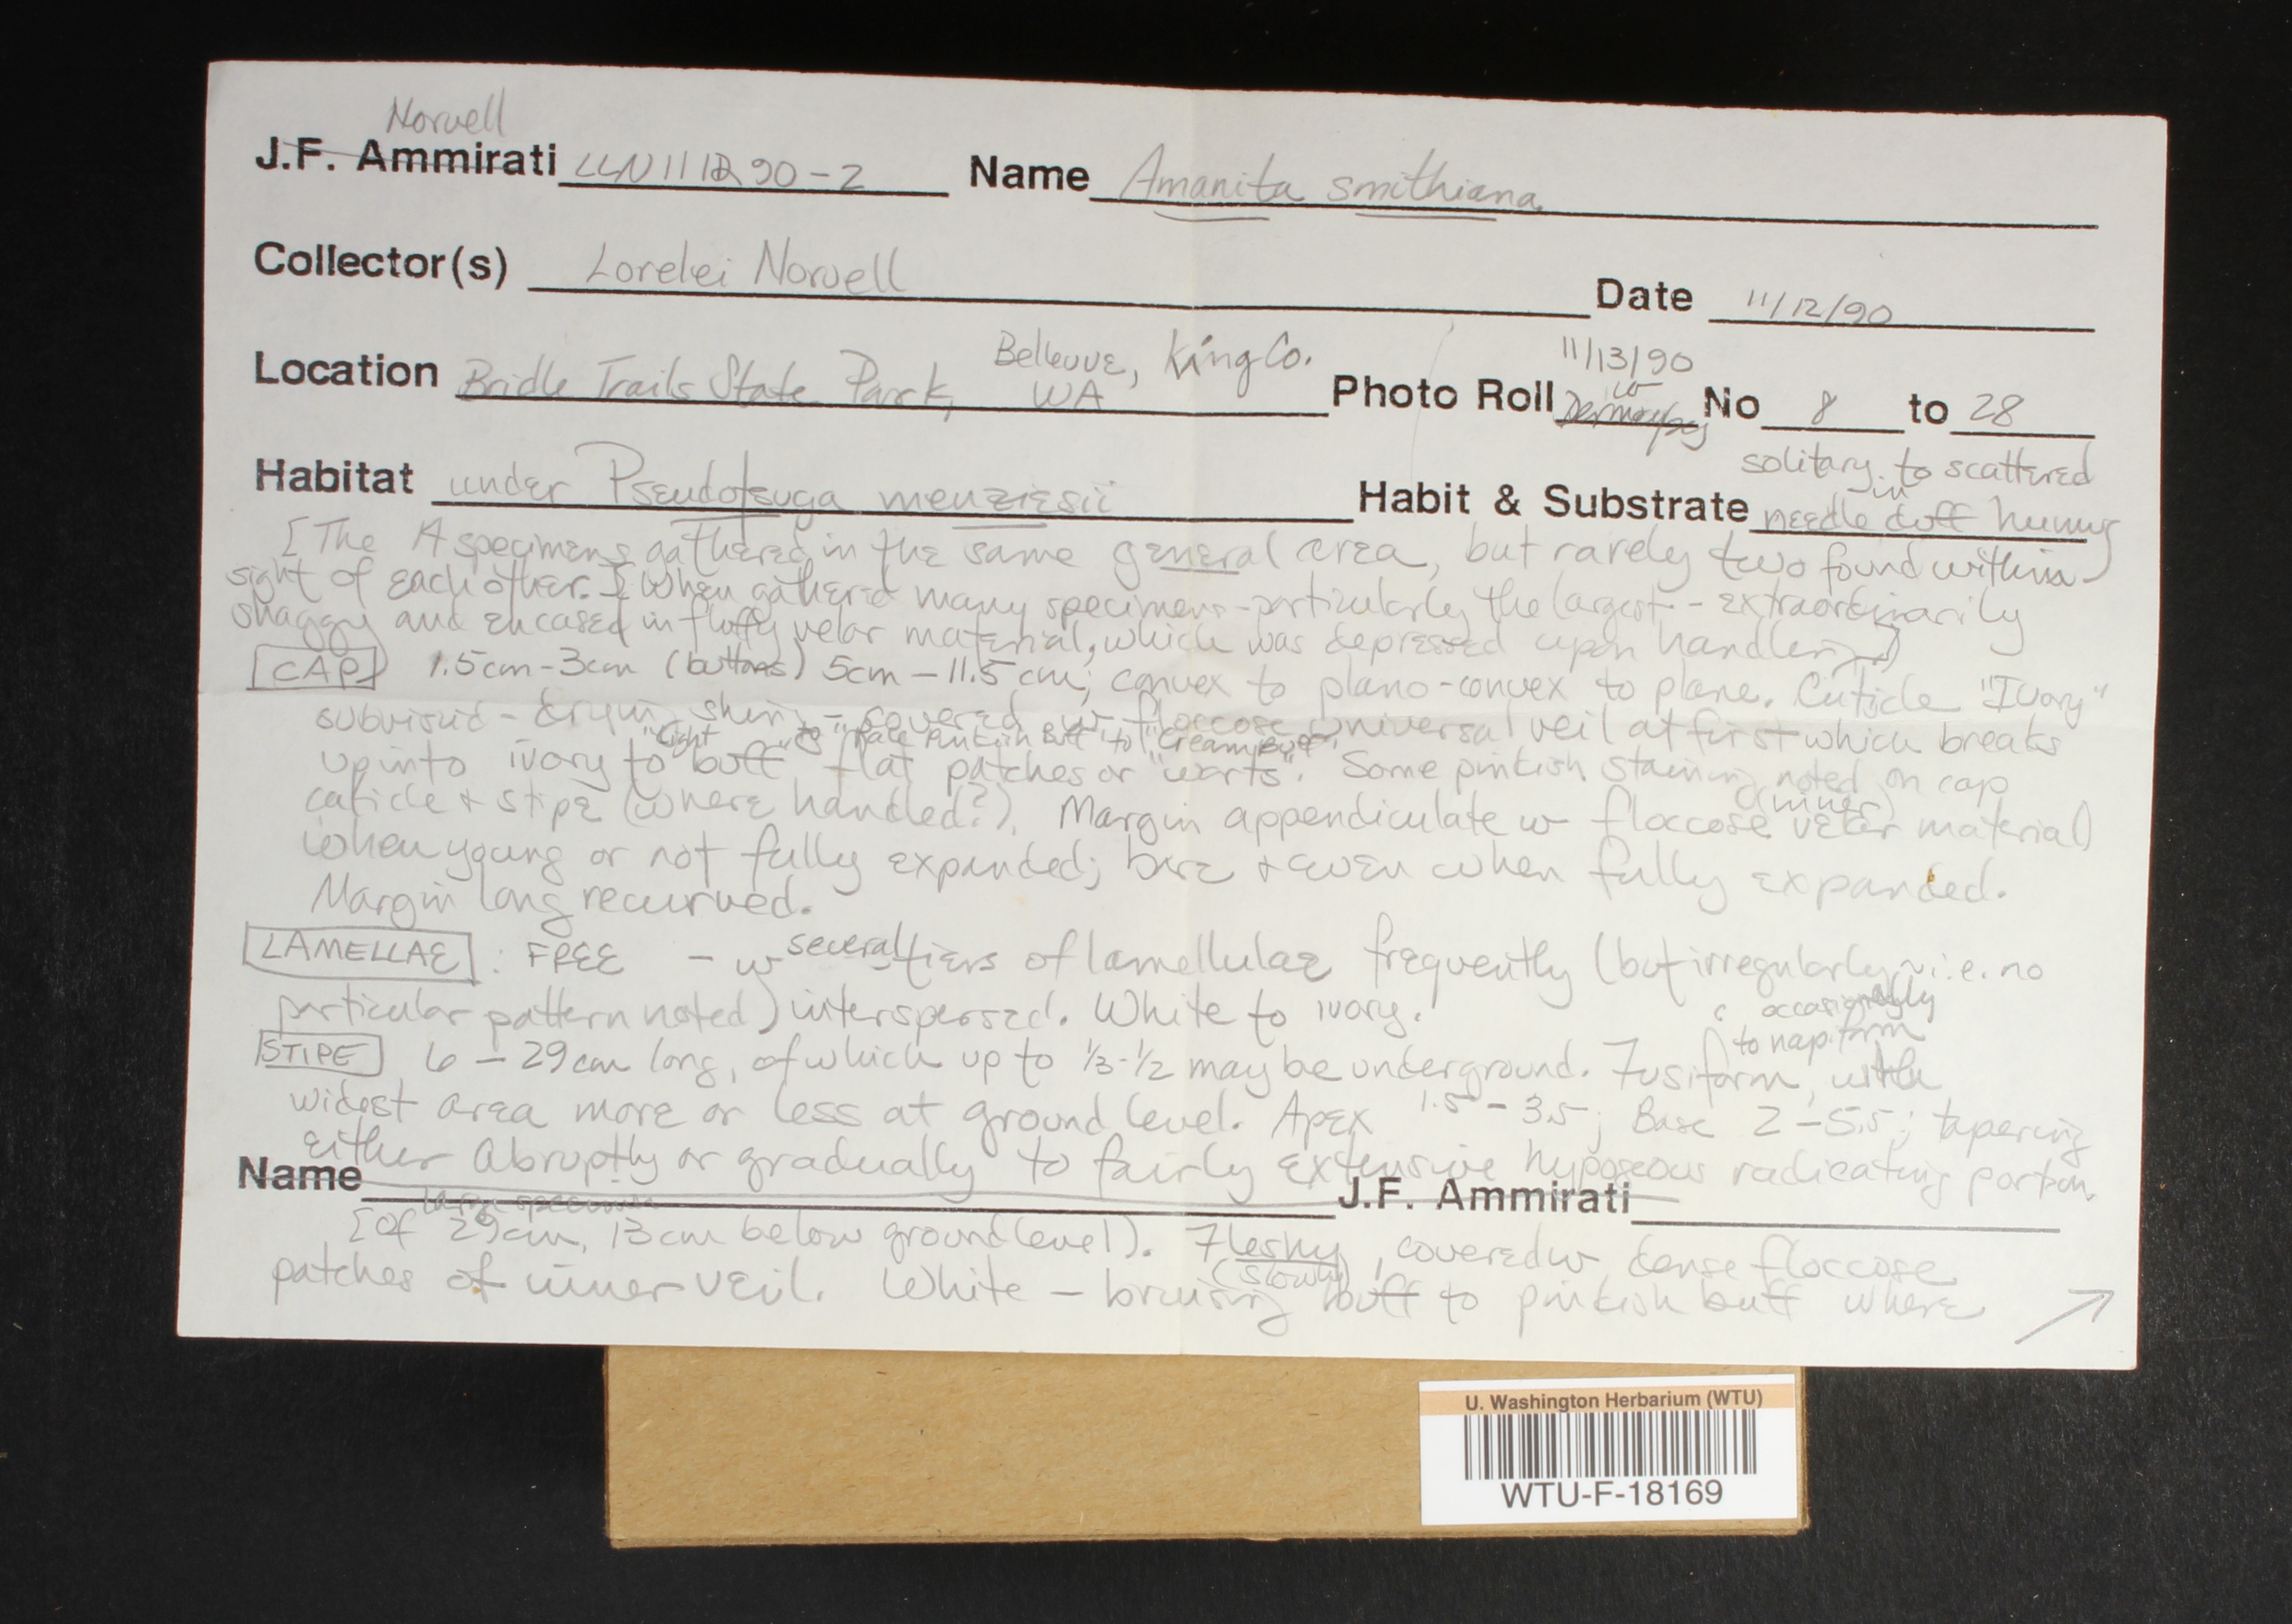 Norvell
J.F. Ammirati LLN111290-2 Name Amanita smithiana
Collector(s) Lorelei Norvell
Date 11/12/90
Location Bridle Trails State Park, Bellevue, King Co. WA
Photo Roll 11/13/90 w No 8 to 28
Habitat under Pseudotsuga menziesii
Habit & Substrate solitary to scattered in needle duff humus
[The A specimens gathered in the same general area, but rarely two found within
sight of each other.] [When gathered many specimens - particularly the largest - extraordinarily
shaggy and encased in fluffy velar material, which was depressed upon handling]
CAP 1.5cm-3cm (buttons) 5cm-11.5cm; convex to plano-convex to plane. Cuticle "Ivory"
subviscid - drying shiny - covered w floccose universal veil at first which breaks
"Light "to "Pale Pinkish Buff" to "Cream Buff".
up into ivory to buff" flat patches or "warts". Some pinkish staining noted on cap
cuticle + stipe (where handled?). Margin appendiculate w floccose (inner) velar material
when young or not fully expanded; bare + even when fully expanded.
Margin long recurved.
LAMELLAE: FREE - w several tiers of lamellulae frequently (but irregularly ~ i.e. no
particular pattern noted) interspersed. White to ivory.
occasionally
to napiform
STIPE 6-29cm long, of which up to 1/3-1/2 may be underground. Fusiform, with
widest area more or less at ground level. Apex 1.5-3.5; Base 2-5.5; tapering
either abruptly or gradually to fairly extensive hypogeous radicating portion.
Name J.F. Ammirati
large specimen
[of 29cm, 13cm below ground level]. Fleshy, covered w dense floccose
patches of inner veil. White - bruising (slowly) buff to pinkish buff where
U. Washington Herbarium (WTU)
WTU-F-18169